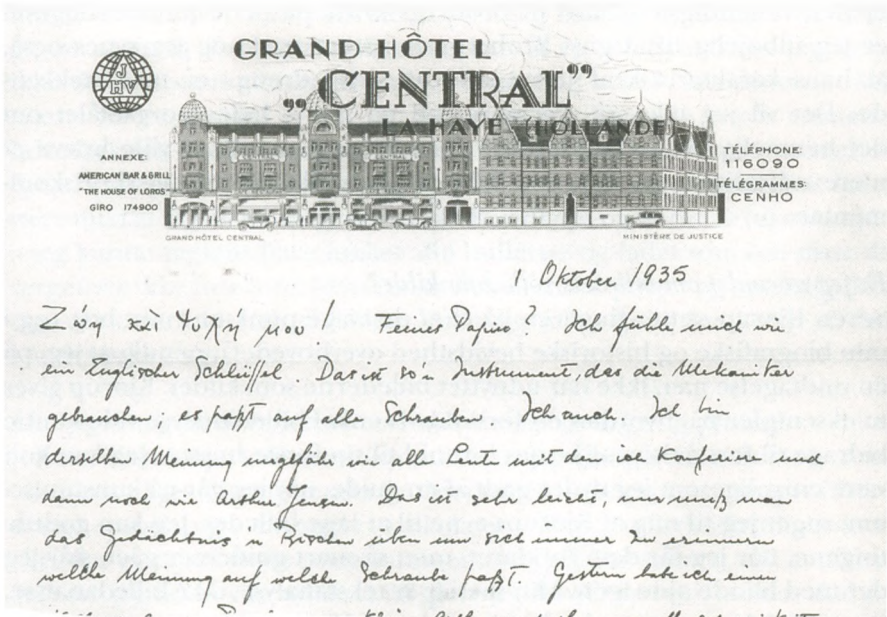 GRAND HÔTEL
„CENTRAL"
LA HAYE (HOLLANDE)
JHV
ANNEXE:
AMERICAN BAR & GRILL
"THE HOUSE OF LORDS"
GIRO 174900
TÉLÉPHONE
116090
TÉLÉGRAMMES
CENHO
CENTRAL
GRAND HÔTEL CENTRAL
MINISTÈRE DE JUSTICE
1. Oktober 1935
Ζωή καὶ ψυχή μου! Feinst Papier. Ich fühle mich wie
ein Englischer Schlüssel. Das ist so'n Instrument, das die Mekaniker
gebrauchen; es paßt auf alle Schrauben. Ich auch. Ich bin
derselben Meinung ungefähr wie alle Leute mit die ich Konferiere und
das noch wie
Das ist sehr leicht, nur muß man
das Gedichtnis 'n Bischen üben um sich immer zu erinnern
welche Meinung auf welche Schraube paßt. Gestern hab ich einen